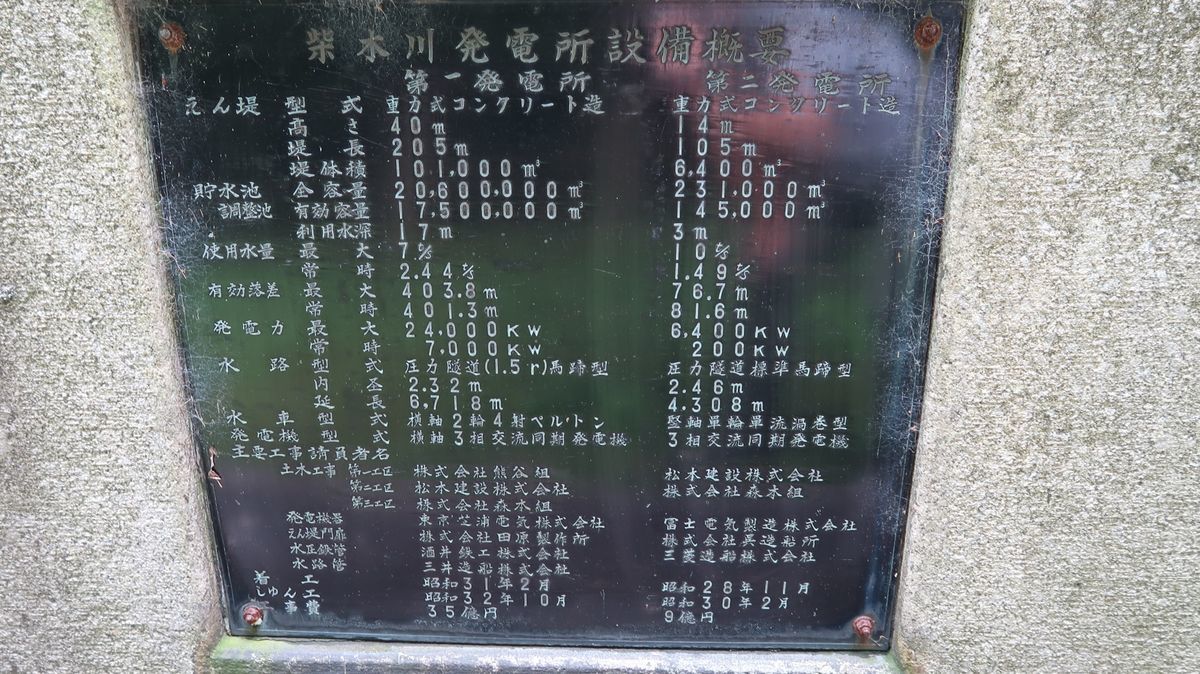 柴木川発電所設備概要
第一発電所 第二発電所
えん堤 型式 重力式コンクリート造 重力式コンクリート造
高さ 40m 14m
堤長 205m 105m
堤体積 101,000m³ 6,400m³
貯水池 全容量 20,600,000m³ 231,000m³
調整池 有効容量 17,500,000m³ 145,000m³
利用水深 17m 3m
使用水量 最大 7㎥/s 10㎥/s
常時 2.44㎥/s 1.49㎥/s
有効落差 最大 403.8m 76.7m
常時 401.3m 81.6m
発電力 最大 24,000KW 6,400KW
常時 7,000KW 200KW
水路 型式 圧力隧道(1.5r)馬蹄型 圧力隧道標準馬蹄型
内圣 2.32m 2.46m
延長 6,718m 4.308m
水車型式 横軸2輪4射ペルトン 竪軸単輪単流渦巻型
発電機型式 横軸3相交流同期発電機 3相交流同期発電機
主要工事請負者名
土水工事 第一工区 株式会社熊谷組 松本建設株式会社
第二工区 松本建設株式会社 株式会社森本組
第三工区 株式会社森本組
発電機器 東京芝浦電気株式会社 富士電気製造株式会社
えん堤門扉 株式会社田原製作所 株式会社呉造船所
水圧鉄管 酒井鉄工株式会社 三菱造船株式会社
水路管 三井造船株式会社
着工 昭和31年2月 昭和28年11月
しゅん工 昭和32年10月 昭和30年2月
事費 35億円 9億円